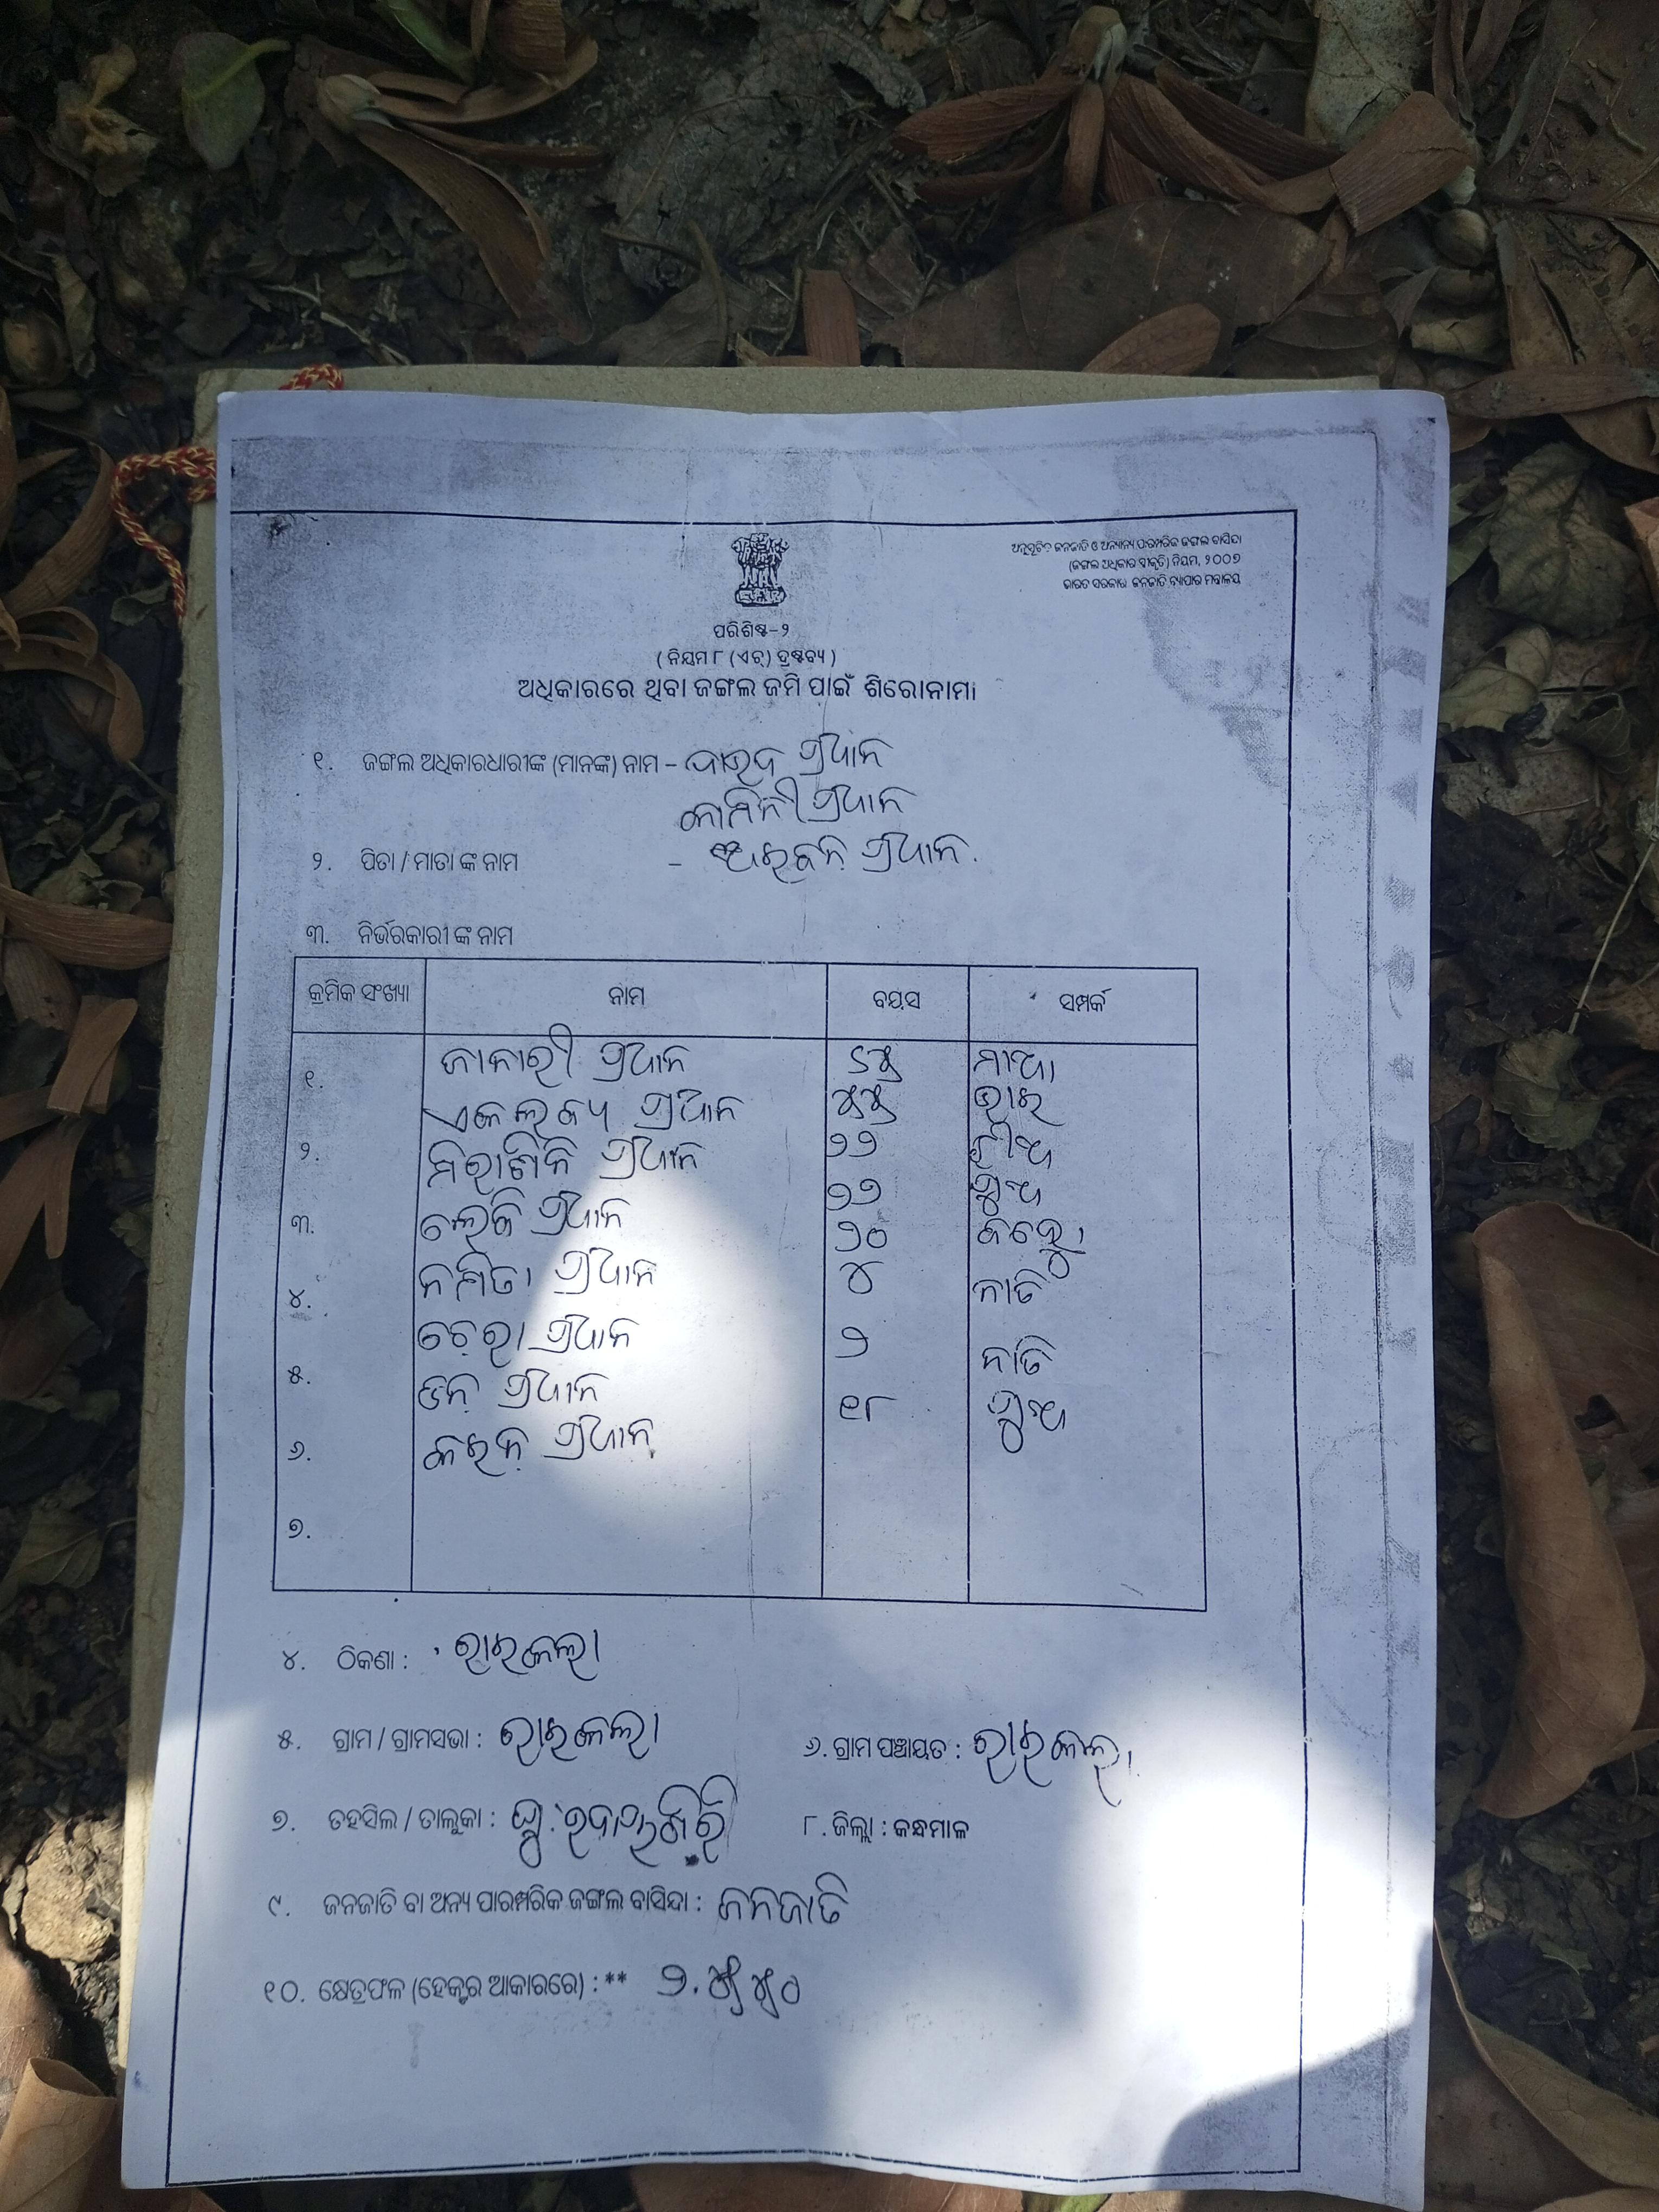 ଅନୁସୂଚିତ ଜନଜାତି ଓ ଅନ୍ୟାନ୍ୟ ପାରମ୍ପରିକ ଜଙ୍ଗଲ ବାସିନ୍ଦା
(ଜଙ୍ଗଲ ଅଧିକାର ସ୍ୱୀକୃତି) ନିୟମ, ୨୦୦୭
ଭାରତ ସରକାର ଜନଜାତି ବ୍ୟାପାର ମନ୍ତ୍ରାଳୟ
ପରିଶିଷ୍ଟ-୨
( ନିୟମ ୮ (ଏଚ୍) ଦ୍ରଷ୍ଟବ୍ୟ )
ଅଧିକାରରେ ଥିବା ଜଙ୍ଗଲ ଜମି ପାଇଁ ଶିରୋନାମା
୧. ଜଙ୍ଗଲ ଅଧିକାରଧାରୀଙ୍କ (ମାନଙ୍କ) ନାମ - ପ୍ରଧାନ
କାମିନୀ ପ୍ରଧାନ
୨. ପିତା / ମାତା ଙ୍କ ନାମ - ପ୍ରଧାନ.
୩. ନିର୍ଭରକାରୀ ଙ୍କ ନାମ
କ୍ରମିକ ସଂଖ୍ୟା ନାମ ବୟସ ସମ୍ପର୍କ
୧. ପ୍ରଧାନ ମାଆ
ଏକଲବ୍ୟ ପ୍ରଧାନ ୫୫ ଭାଇ
୨. ପ୍ରଧାନ ୨୨ ଝୀଅ
୩. ପ୍ରଧାନ ୨୨ ପୁଅ
୪. ନମିତା ପ୍ରଧାନ ୨୦
ପ୍ରଧାନ ୪ ନାତି
୫. ପ୍ରଧାନ ୨ ନାତି
୬. ପ୍ରଧାନ ୧୮ ପୁଅ
୭.
୪. ଠିକଣା : ରାଇକଲା
୫. ଗ୍ରାମ / ଗ୍ରାମସଭା : ରାଇକଲା ୬. ଗ୍ରାମ ପଞ୍ଚାୟତ : ରାଇକଲା
୭. ତହସିଲ / ତାଲୁକା : ଘୁ. ଉଦୟଗିରି ୮. ଜିଲ୍ଲା : କନ୍ଧମାଳ
୯. ଜନଜାତି ବା ଅନ୍ୟ ପାରମ୍ପରିକ ଜଙ୍ଗଲ ବାସିନ୍ଦା : ଜନଜାତି
୧୦. କ୍ଷେତ୍ରଫଳ (ହେକ୍ଟର ଆକାରରେ) : ** ୨.୫୫୦